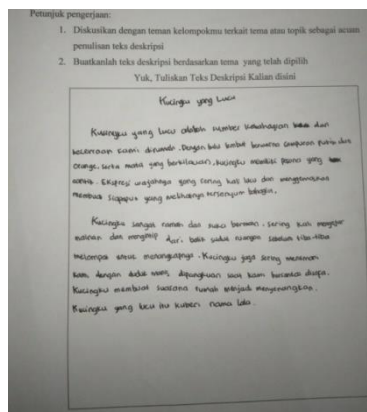 Petunjuk pengerjaan:
1. Diskusikan dengan teman kelompokmu terkait tema atau topik sebagai acuan
penulisan teks deskripsi
2. Buatkanlah teks deskripsi berdasarkan tema yang telah dipilih
Yuk, Tuliskan Teks Deskripsi Kalian disini
Kucingku yang Lucu
Kucingku yang lucu adalah sumber kebahagian dan
keceriaan kami dirumah. Dengan bulu lembut berwarna campuran putih dan
orange, serta mata yang berkilauan, kucingku memiliki pesona yang
Ekspresi wajahnya yang sering kali lucu dan menggemaskan
membuat siapapun yang melihatnya tersenyum bahagia.
Kucingku sangat ramah dan suka bermain, sering kali mengejar
mainan dan mengintip dari balik sudut ruangan sebelum tiba-tiba
melompat untuk menangkapnya. Kucingku juga sering menemani
kami dengan duduk dipangkuan saat kami bersantai
Kucingku membuat suasana rumah menjadi menyenangkan.
Kucingku yang lucu itu kuberi nama lala.